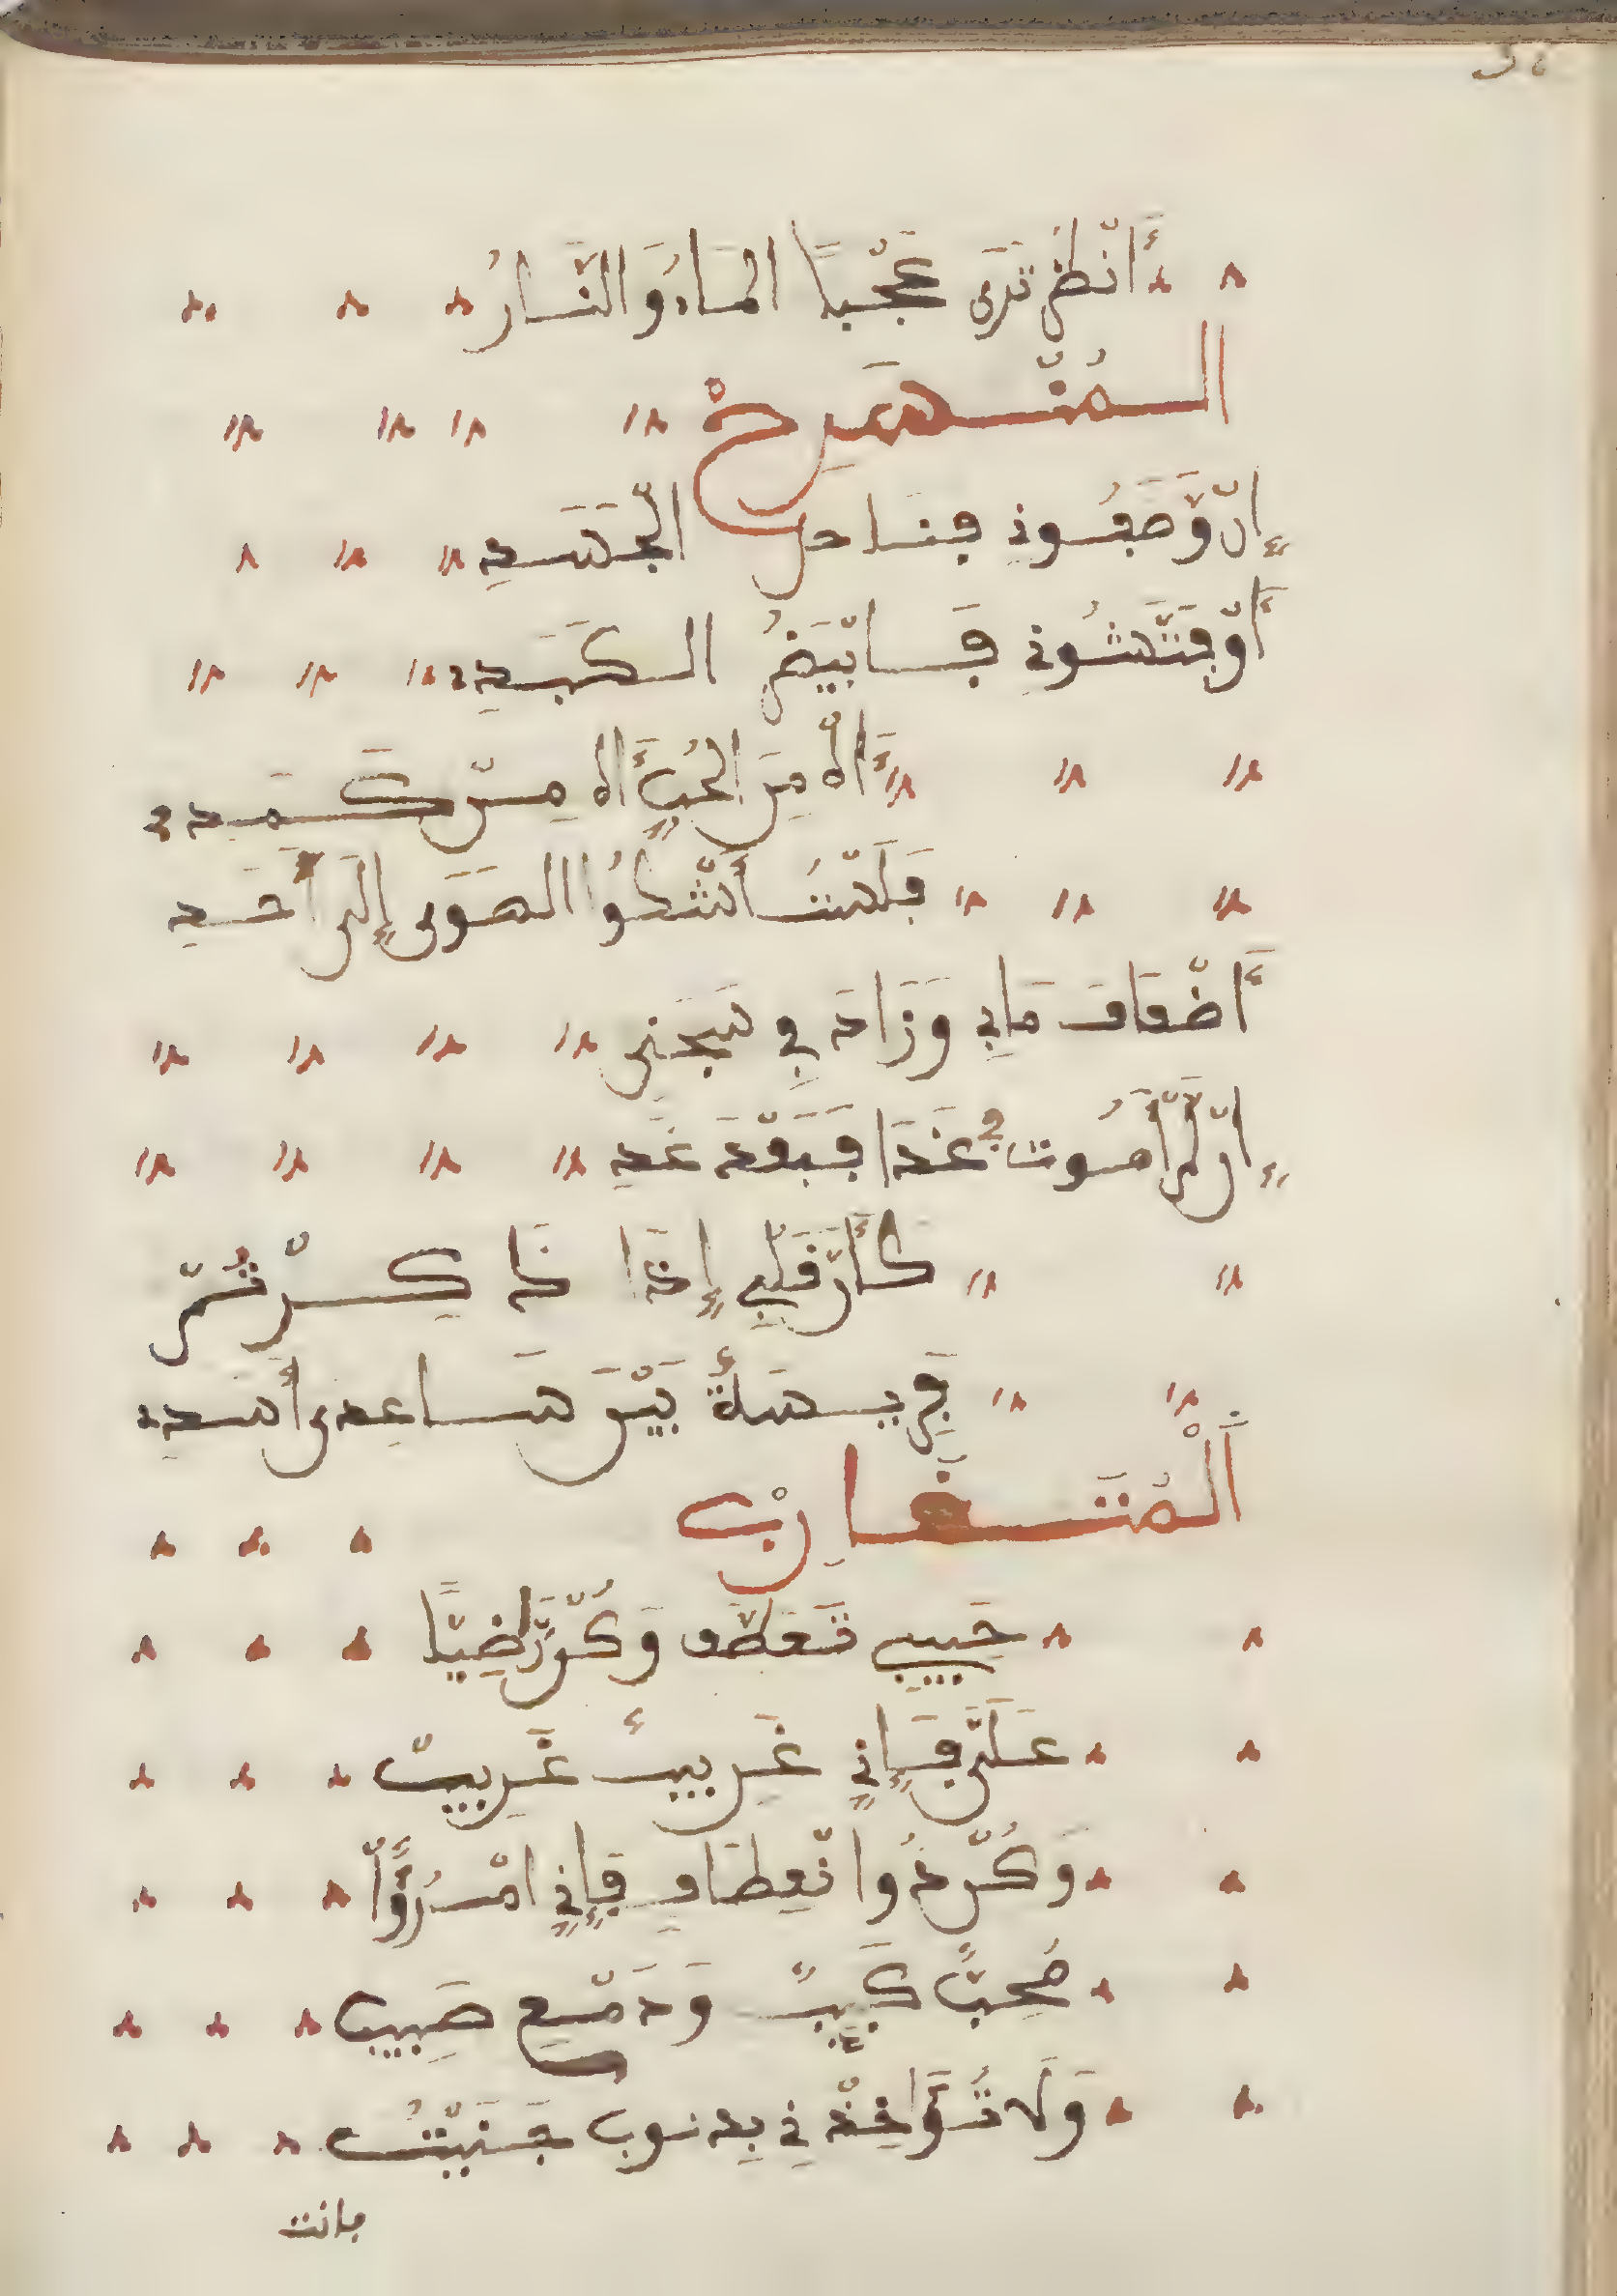 أَنْظُر تَرَى عَجْبًا المَاءُ وَالنَّارُ
المُنْسَرِحْ
إِنْ وَصَفُونِي فَنَاحِل الجَسَدِ
أَوْ فَتَّشُونِي فَابْيَضُ الكَبَدِ
أَاهْ مِنَ الحُبِّ أَاه مِنْ كَمَدِ
فَلَسْتُ أَشْكُوا الهَوَى إِلَى أَحَدِ
أَضْعَافَ مَابِي وَزَادَ فِي شَجَنِى
إِنْ لَمْ أَمُوت غَدَا فَبَعْدَ غَدِ
كَأَنّ قَلْبِي إِذَا ذَكِرْتُمْ
فَرِيسَةٌ بَيْنَ سَاعِدى أَسَدِ
أَلْمُتَقَارِبْ
حَبِيبِي تَعَطَّف وَكُنْ رَّاضِيًّا
عَلَىَّ فَإِنِّي غَرِيبٌ غَرِيبْ
وَكُنْ ذُوا نْعِطَافِ فَإِنِّي امْرُؤًا
مُحِبٌّ كَئِيبٌ وَدَمْعِي صَبِيب
وَلَا تُؤَاخِذْنِي بِذنوب جَنَيْتُ
فانت